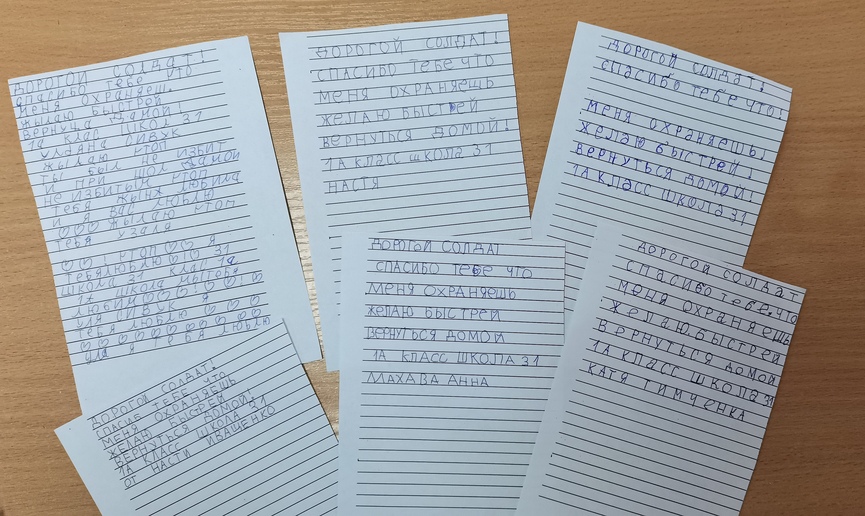 ДОРОГОЙ СОЛДАТ!
СПАСИБО ТЕБЕ ЧТО
МЕНЯ ОХРАНЯЕШ.
ЖЫЛАЮ БЫСТРОЙ
ДОМОЙ!
1А КЛАС ШКОЛ 31
УЛЯНА ЛИВУК
ЖЫЛАЮ
ТЫ БЫЛ НЕ ИЗБИТ
И ПРИ ШОЛ ДАМОЙ
НЕ ИЗБИТЫЙ
ТЕБЯ ЛЮБИЛА
И Я ЛЮБЛЮ
♡♡♡ ЖЫЛАЮ
ТЕБЯ
♡♡ ! ♡♡ Я
ТЕБЯ ЛЮБЛЮ 31
ШКОЛА 31 КЛАП 1а
1А ШКОЛА МЫ ТЕБЯ
ЛЮБИМ ♡♡♡♡♡
УЛЯ ЛИВУК Я
ТЕБЯ ЛЮБЛЮ ♡♡♡
♡♡♡♡♡♡♡♡♡♡
УЛЯ Я ТЕБЯ ЛЮБЛЮ
ДОРОГОЙ СОЛДАТ!
СПАСИБО ТЕБЕ ЧТО
МЕНЯ ОХРАНЯЕШЬ
ЖЕЛАЮ БЫСТРЕЙ
ВЕРНУТЬСЯ ДОМОЙ!
1А КЛАСС ШКОЛА 31
НАСТЯ
ДОРОГОЙ СОЛДАТ!
СПАСИБО ТЕБЕ ЧТО!
МЕНЯ ОХРАНЯЕШЬ.
ЖЕЛАЮ БЫСТРЕЙ,
ВЕРНУТЬСЯ ДОМОЙ!
1А КЛАСС ШКОЛА 31
ДОРОГОЙ СОЛДАТ!
ТЕБЕ ЧТО
МЕНЯ ОХРАНЯЕШЬ
ЖЕЛАЮ БЫСТРЕЙ
ВЕРНУТЬСЯ ДОМОЙ!
1А КЛАСС ШКОЛА 31
ОТ НАСТИ ИВАЩЕНКО
ДОРОГОЙ СОЛДАТ
СПАСИБО ТЕБЕ ЧТО
МЕНЯ ОХРАНЯЕШЬ
ЖЕЛАЮ БЫСТРЕЙ
ВЕРНУТЬСЯ ДОМОЙ
1А КЛАСС ШКОЛА 31
МАХАВА АННА
ДОРОГОЙ СОЛДАТ
СПАСИБО ТЕБЕ.ЧТО
МЕНЯ ОХРАНЯЕШЬ
ЖЕЛАЮ.БЫСТРЕЙ
ВЕРНУТЬСЯ ДОМОЙ
1А КЛАСС ШКОЛА 31
КАТЯ ТИМЧЕНКА